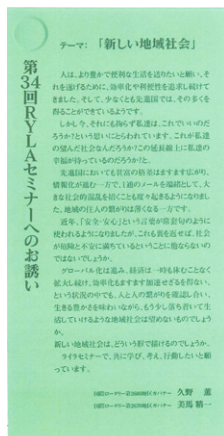 第34回RYLAセミナーへのお誘い
テーマ：「新しい地域社会」
人は、より豊かで便利な生活を送りたいと願い、そ
れを遂げるために、効率化や利便性を追求し続けて
きました。そして、少なくとも先進国では、その多くを
得ることができているようです。
しかし今、それにも拘らず私達は、これでいいのだ
ろうか?という思いにとらわれています。これが私達
の望んだ社会なんだろうか?この延長線上に私達の
幸福が待っているのだろうか?と。
先進国においても貧富の格差はますます広がり、
情報化が進む一方で、1通のメールを端緒として、大
きな社会的混乱を招くことも度々起きるようになりまし
た。地域の住人の繋がりは薄くなる一方です。
近年、「安全・安心」という言葉が常套句のように
使われるようになりましたが、これも裏を返せば、社会
が危険と不安に満ちているということに他ならないの
ではないでしょうか。
グローバル化は進み、経済は一時も休むことなく
拡大し続け、効率化もますます加速せざるを得ない、
という状況の中でも、人と人の繋がりを確認し合い、
生きる豊かさを味わいながら、もう少し落ち着いて生
活していけるような地域社会は望めないものでしょう
か。
新しい地域社会は、どういう形で描けるのでしょうか。
ライラセミナーで、共に学び、考え、行動したいと願
っています。
国際ロータリー第2680地区ガバナー 久野 薫
国際ロータリー第2660地区ガバナー 美馬 精一